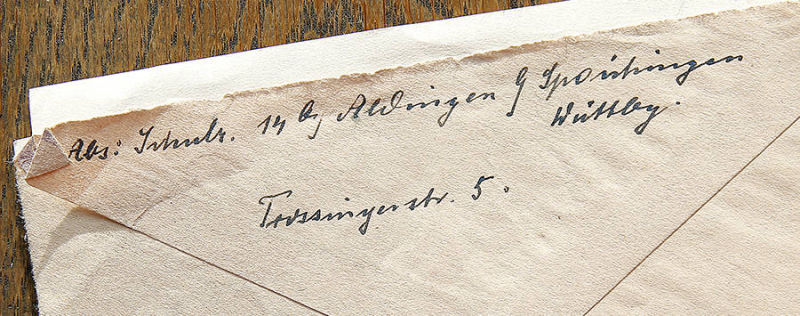 Abs: Schulz. 14 b, Aldingen b Spaichingen
Württbg.
Trossingerstr. 5.